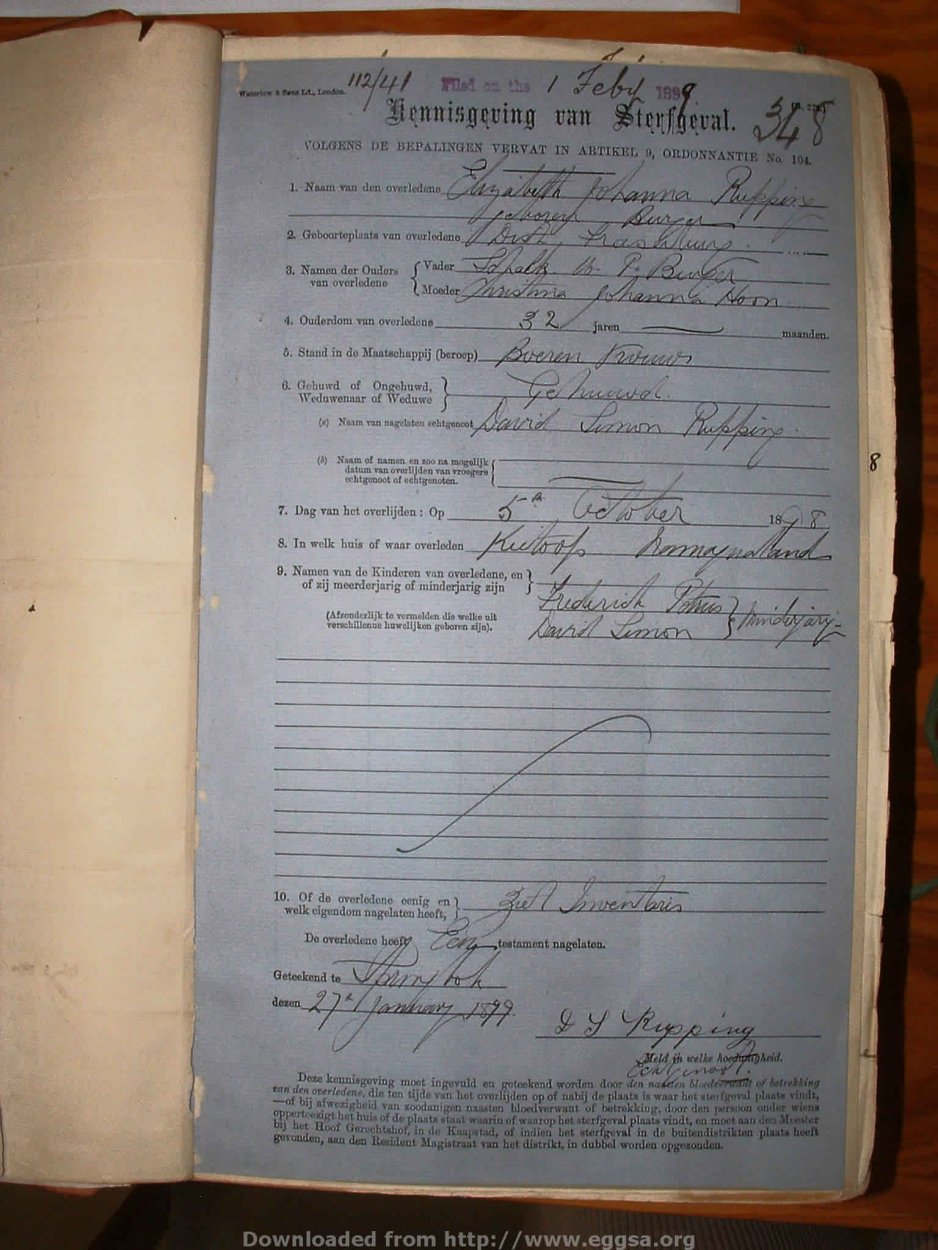 Waterlow & Sons Ld., London.
112/41 Filed on the 1 Feby 1899
Kennisgeving van Sterfgeval.
348
VOLGENS DE BEPALINGEN VERVAT IN ARTIKEL 9, ORDONNANTIE No. 104.
1. Naam van den overledene Elizabeth Johanna Rupping
geboren Burger
2. Geboorteplaats van overledene Dist. Fraserburg.
3. Namen der Ouders van overledene { Vader Schalk W. P. Burger
Moeder Christina Johanna Hoon
4. Ouderdom van overledene 32 jaren — maanden.
5. Stand in de Maatschappij (beroep) Boeren Vrouw
6. Gehuwd of Ongehuwd,
Weduwenaar of Weduwe } Gehuwd.
(a) Naam van nagelaten echtgenoot David Simon Rupping.
(b) Naam of namen en zoo na mogelijk
datum van overlijden van vroegere
echtgenoot of echtgenoten. {
7. Dag van het overlijden: Op 5n October 1898
8. In welk huis of waar overleden Namaqualand
9. Namen van de Kinderen van overledene, en
of zij meerderjarig of minderjarig zijn }
Frederick Petrus
(Afzonderlijk te vermelden die welke uit
verschillende huwelijken geboren zijn).
David Simon } Minderjarig
8
10. Of de overledene eenig en
welk eigendom nagelaten heeft, } Ziet Inventaris
De overledene heeft Een testament nagelaten.
Geteekend te Springbok
dezen 27n January 1899.
D S Rupping
Meld in welke hoedanigheid.
Echtgenoot.
Deze kennisgeving moet ingevuld en geteekend worden door den naasten bloedverwant of betrekking
van den overledene, die ten tijde van het overlijden op of nabij de plaats is waar het sterfgeval plaats vindt,
—of bij afwezigheid van zoodanigen naasten bloedverwant of betrekking, door den persoon onder wiens
oppertoezigt het huis of de plaats staat waarin of waarop het sterfgeval plaats vindt, en moet aan den Meester
bij het Hoof Gerechtshof, in de Kaapstad, of indien het sterfgeval in de buitendistrikten plaats heeft
gevonden, aan den Resident Magistraat van het distrikt, in dubbel worden opgezonden.
Downloaded from http://www.eggsa.org